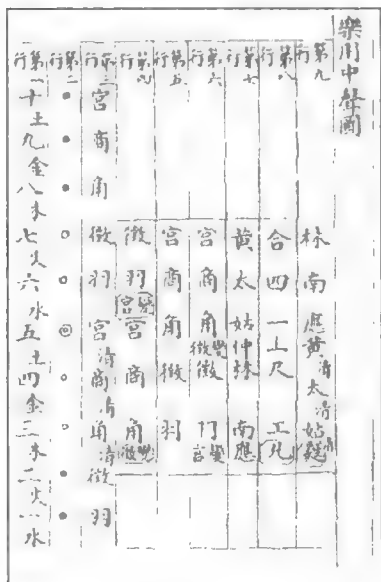 樂用中聲圖
第九行 林 南 應 黃清 太清 姑清 㽔
第八行 合 四 一 上 尺 工 凡
第七行 黃 太 姑 仲 林 南 應
第六行 宮 商 角 變徵 徵 羽 變宮
第五行 宮 商 角 徵 羽
第四行 徵 羽 變宮 宮 商 角 變徵
第三行 宮 商 角 徵 羽 宮清 商清 角清 徵 羽
第二行 ● ● ● ○ ○ ◎ ○ ○ ● ●
第一行 十土 九金 八木 七火 六水 五土 四金 三木 二火 一水